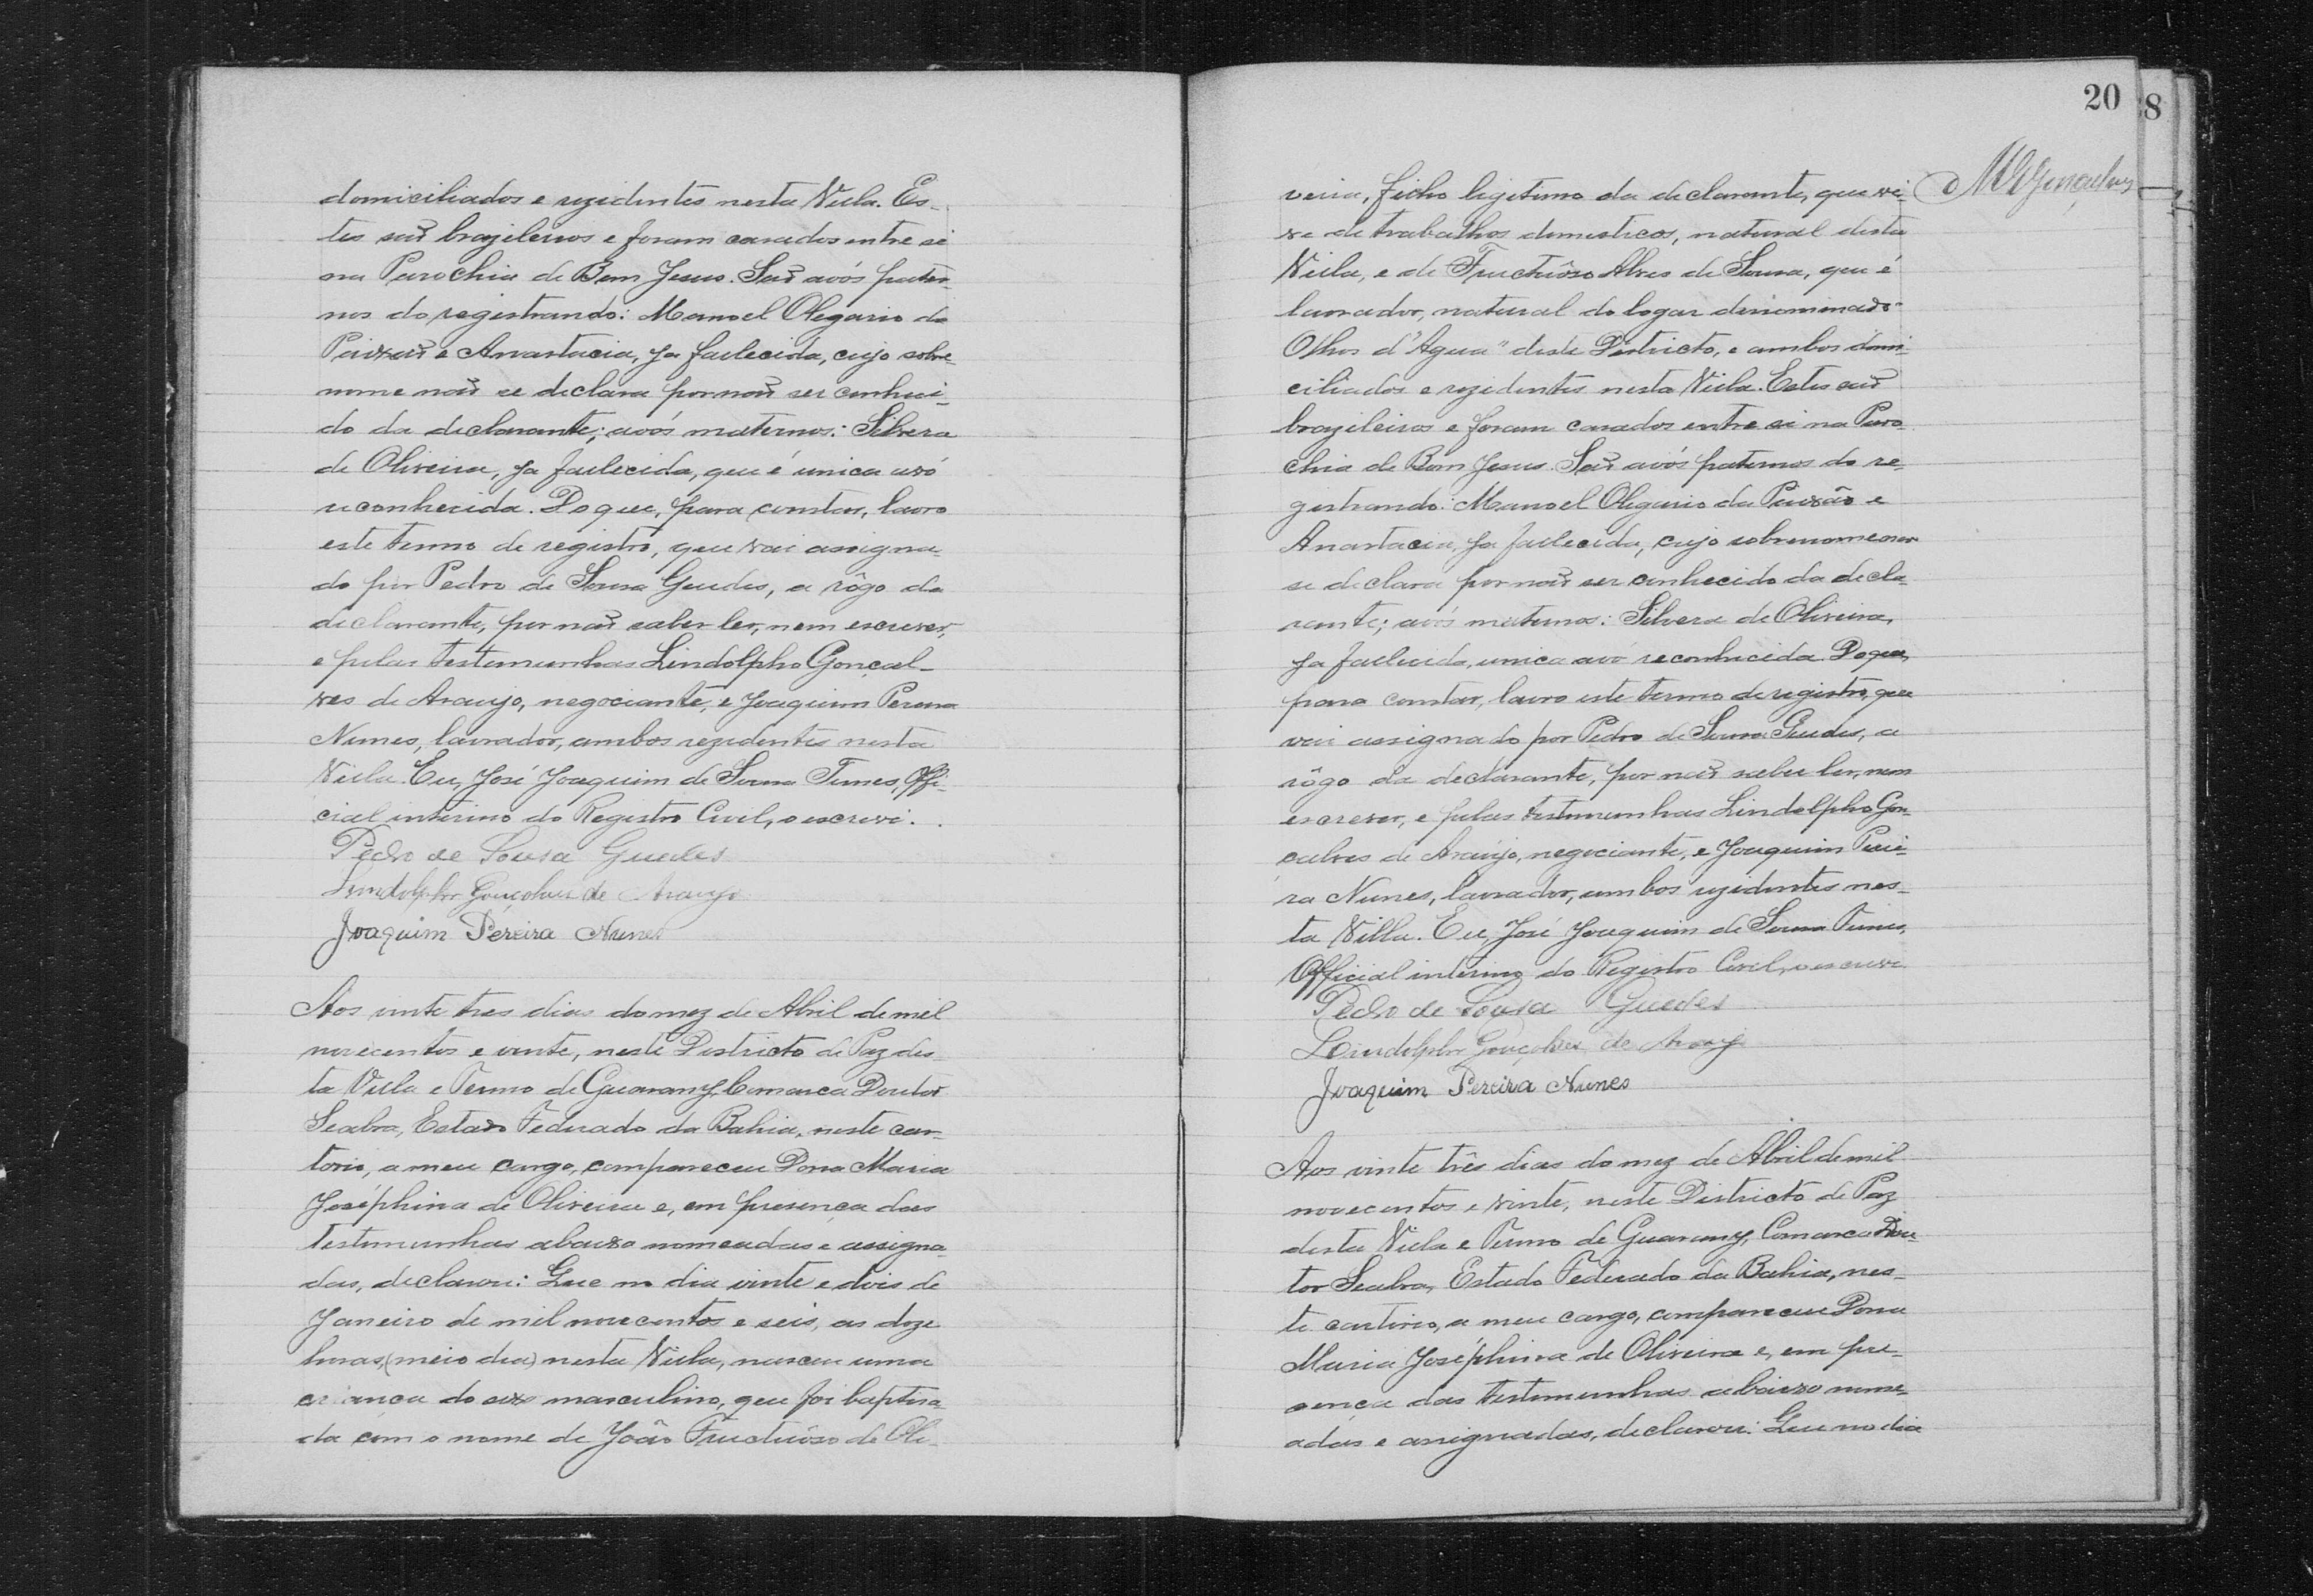 domiciliados e rezidentes nesta Villa. Es-
tes são brazileiros e foram casados entre si
na Parochia de Bom Jesus. São avós pater-
nos do registrando: Manoel Olegario da
Paixão e Anastacia, ja fallecida, cujo sobre-
nome não se declara por não ser conheci-
do da declarante; avós maternos: Silvera
de Oliveira, ja fallecida, que é unica avó
reconhecida. Do que, para constar, lavro
este termo de registro, que vai assigna-
do por Pedro de Sousa Guedes, a rôgo da
declarante, por não saber ler, nem escrever,
e pelas testemunhas Lindolpho Gonçal-
ves de Araujo, negociante, e Joaquim Pereira
Nunes, lavrador, ambos rezidentes nesta
Villa. Eu, José Joaquim de Sousa Tunes, Offi-
cial interino do Registro Civil, o escrevi.
Pedro de Sousa Guedes
Lindolpho Gonçalves de Araujo
Joaquim Pereira Nunes
Aos vinte tres dias do mez de Abril de mil
novecentos e vinte, neste Districto de Paz des-
ta Villa e Termo de Guarany, Comarca Doutor
Seabra, Estado Federado da Bahia, neste car-
torio, a meu cargo, compareceu Dona Maria
Joséphina de Oliveira e, em presença das
testemunhas abaixo nomeadas e assigna-
das, declarou: Que no dia vinte e dois de
Janeiro de mil novecentos e seis, as doze
horas, (meio dia) nesta Villa, nasceu uma
criança do sexo masculino, que foi baptisa-
da com o nome de João Fructuôso de Oli-
20
8
MGGonçalves
veira, filho legitimo da declarante, que vi-
ve de trabalhos domesticos, natural desta
Villa, e de Fructuôso Alves de Sousa, que é
lavrador, natural do logar denominado "
Olhos d'Agua" deste Districto, e ambos domi-
ciliados e rezidentes nesta Villa. Estes são
brazileiros e foram casados entre si na Paro-
chia de Bom Jesus. São avós paternos do re-
gistrando: Manoel Olegario da Paixão e
Anastacia, ja fallecida, cujo sobrenome não
se declara por não ser conhecido da decla-
rante; avós maternos: Silvera de Oliveira,
ja fallecida, unica avó reconhecida. Do que,
para constar, lavro este termo de registro, que
vai assignado por Pedro de Sousa Guedes, a
rôgo da declarante, por não saber ler, nem
escrever, e pelas testemunhas Lindolpho Gon-
çalves de Araujo, negociante, e Joaquim Perei-
ra Nunes, lavrador, ambos rezidentes nes-
ta Villa. Eu, José Joaquim de Sousa Tunes,
Official interino do Registro Civil, o escrevi
Pedro de Sousa Guedes
Lindolpho Gonçalves de Araujo
Joaquim Pereira Nunes
Aos vinte três dias do mez de Abril de mil
novecentos e vinte, neste Districto de Paz
desta Villa e Termo de Guarany, Comarca Dou-
tor Seabra, Estado Federado da Bahia, nes-
te cartorio, a meu cargo, compareceu Dona
Maria Joséphina de Oliveira e, em pre-
sença das testemunhas abaixo nome-
adas e assignadas, declarou: Que no dia